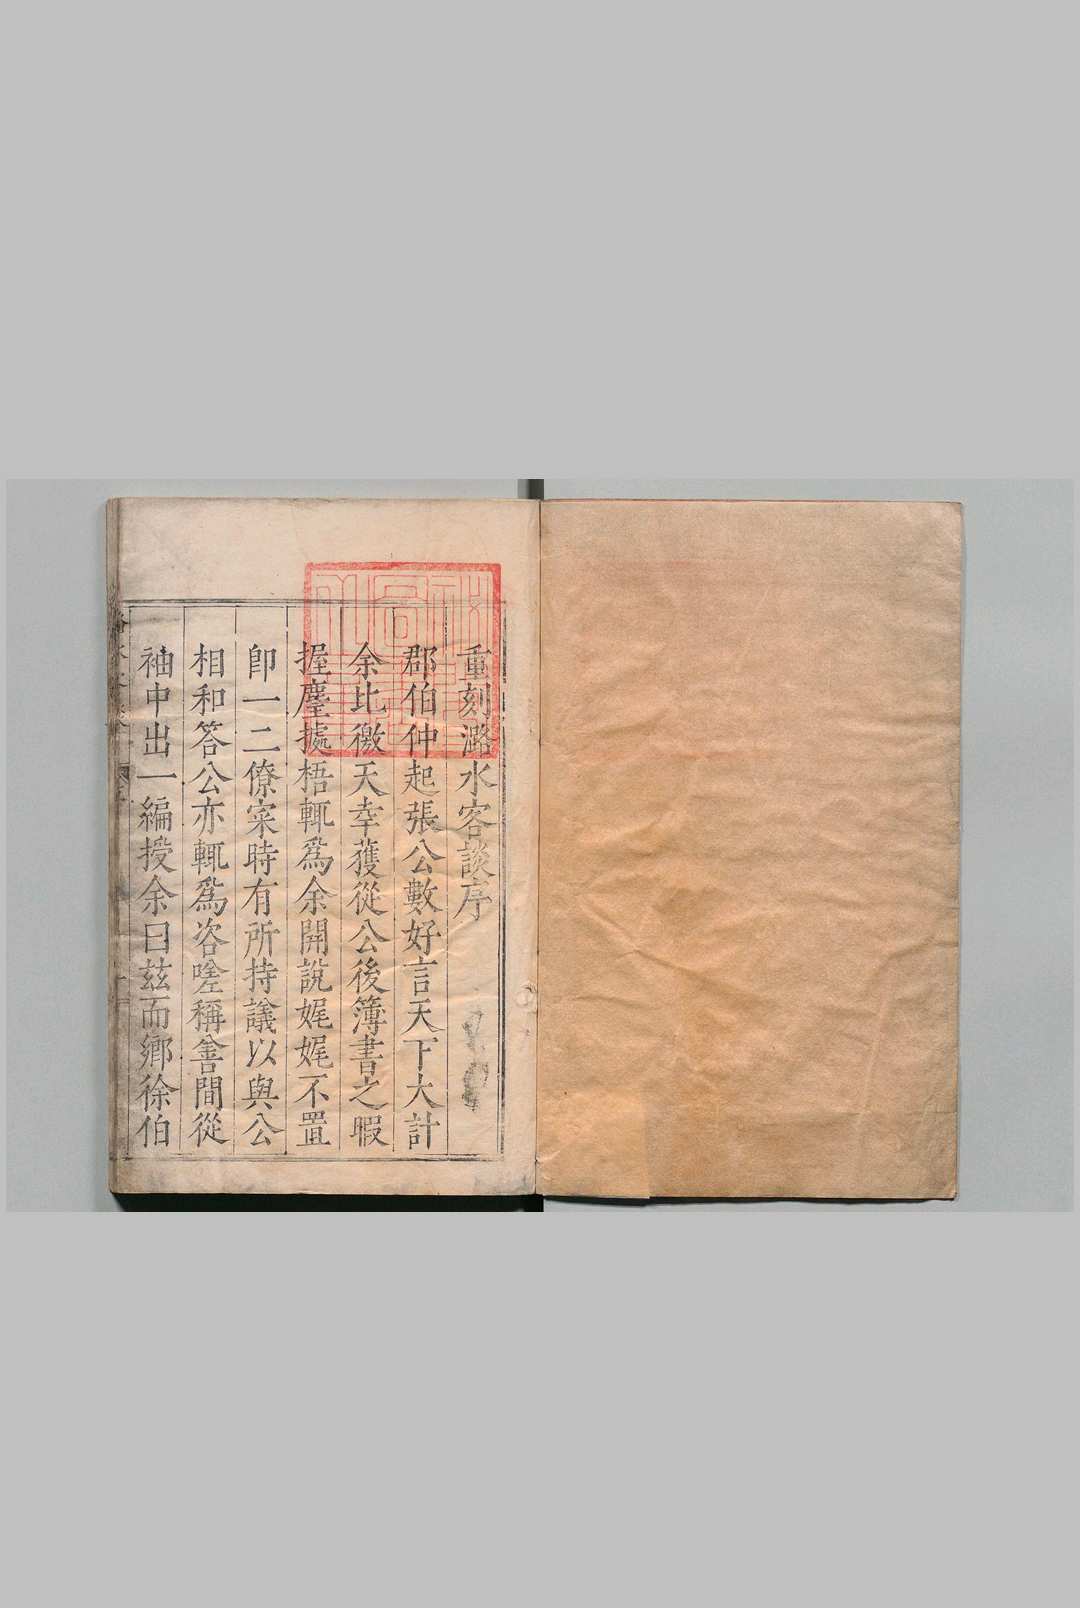 重刻潞水客談序
郡伯仲起張公數好言天下大計
余比徼天幸獲從公後簿書之暇
握麈據梧輒爲余開說娓娓不置
卽一二僚寀時有所持議以與公
相和答公亦輒爲咨嗟稱善間從
袖中出一編授余曰茲而鄉徐伯